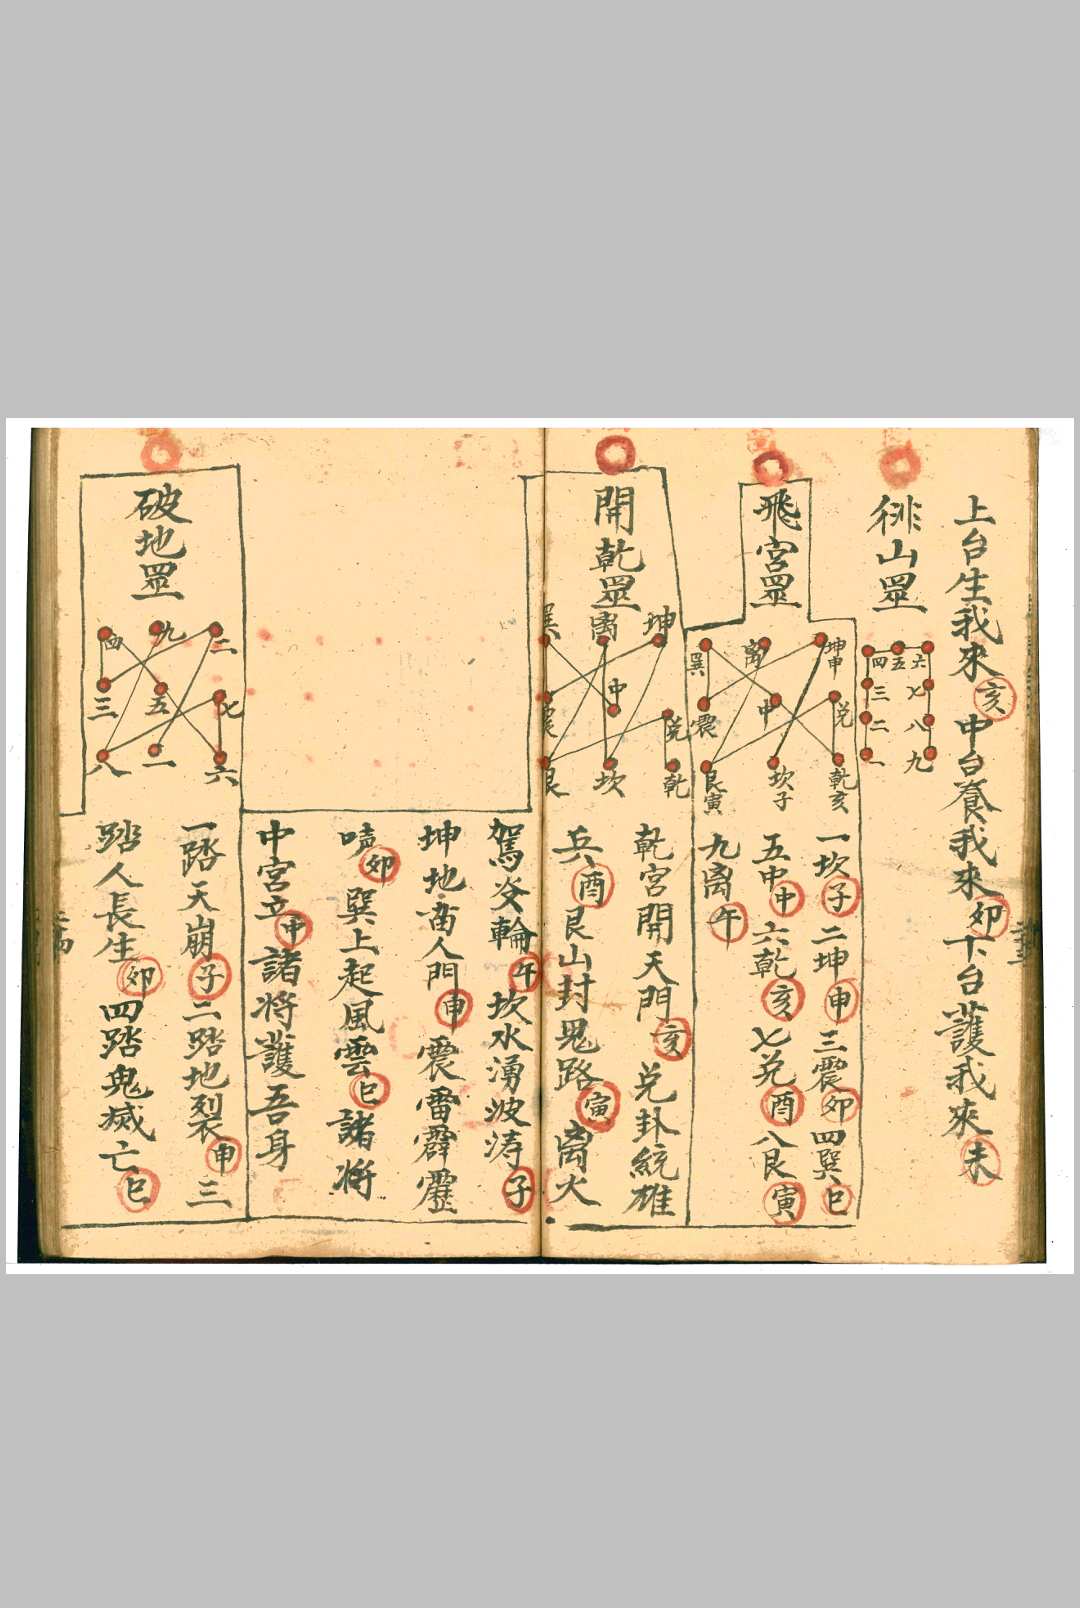 上台生我來亥中台養我來卯下台護我來未
徘山罡
六 五 四
七 三
八 二
九 一
飛宮罡
坤申 离 巽
兌 中 震
乾亥 坎子 艮寅
一坎子二坤申三震卯四巽巳
五中申六乾亥七兌酉八艮寅
九离午
開乾罡
坤 离 巽
兌 中 震
乾 坎 艮
乾宮開天門亥兌卦統雄
兵酉艮山封鬼路寅离火
駕炎輪午坎水湧波涛子
坤地畄人門申震雷霹靂
卯巽上起風雲巳諸将
中宮立申諸将護吾身
破地罡
二 九 四
七 五 三
六 一 八
一踏天崩子二踏地裂申三
踏人長生卯四踏鬼滅亡巳